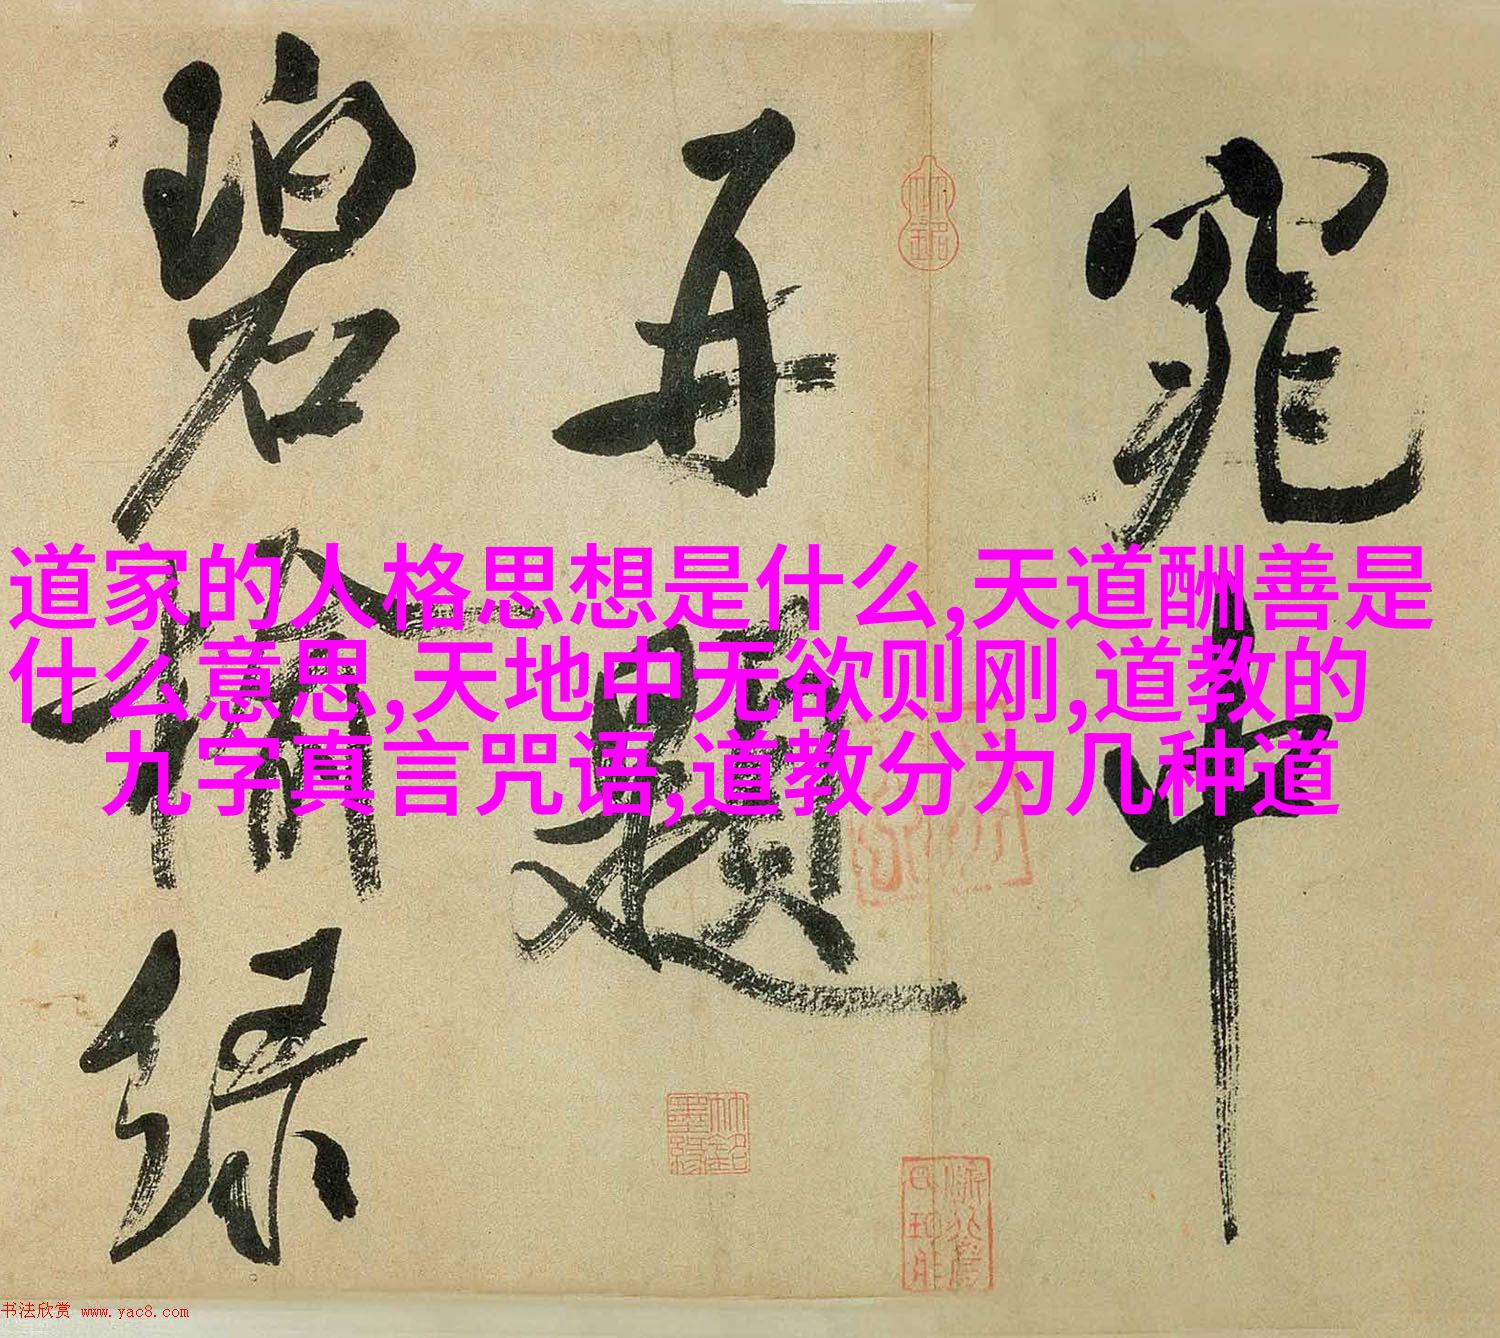 道家的人格思想是什么,天道酬善是
什么意思,天地中无欲则刚,道教的
九字真言咒语,道教分为几种道
窕中
再题
碧梧绿
书法欣赏 www.yac8.com